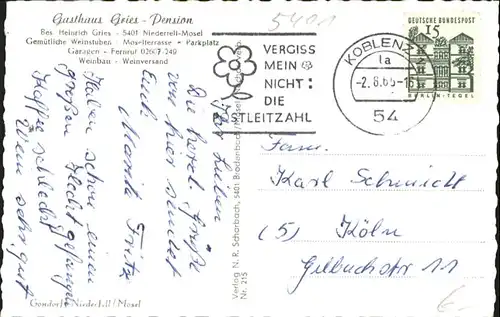 Gasthaus Gries - Pension
Bes. Heinrich Gries - 5401 Niederfell-Mosel
Gemütliche Weinstuben - Moselterrasse - Parkplatz
Garagen - Fernruf 02607-249
Weinbau - Weinversand
5401
VERGISS
MEIN
NICHT:
DIE
POSTLEITZAHL
KOBLENZ
1a
-2.8.65-18
54
DEUTSCHE BUNDESPOST
15
BERLIN-TEGEL
Ihr Lieben
Die herzl. Grüße
von hier sendet
Euch Moritz Fritz
Haben schon einen
großen Hecht gefangen
Kaffee schlecht
Wein sehr gut
Gondorf - Niederfell / Mosel
Verlag N. R. Scharbach, 5401
Nr. 215
Fam.
Karl Schmidt
(5) Köln
Gilbachstr 11